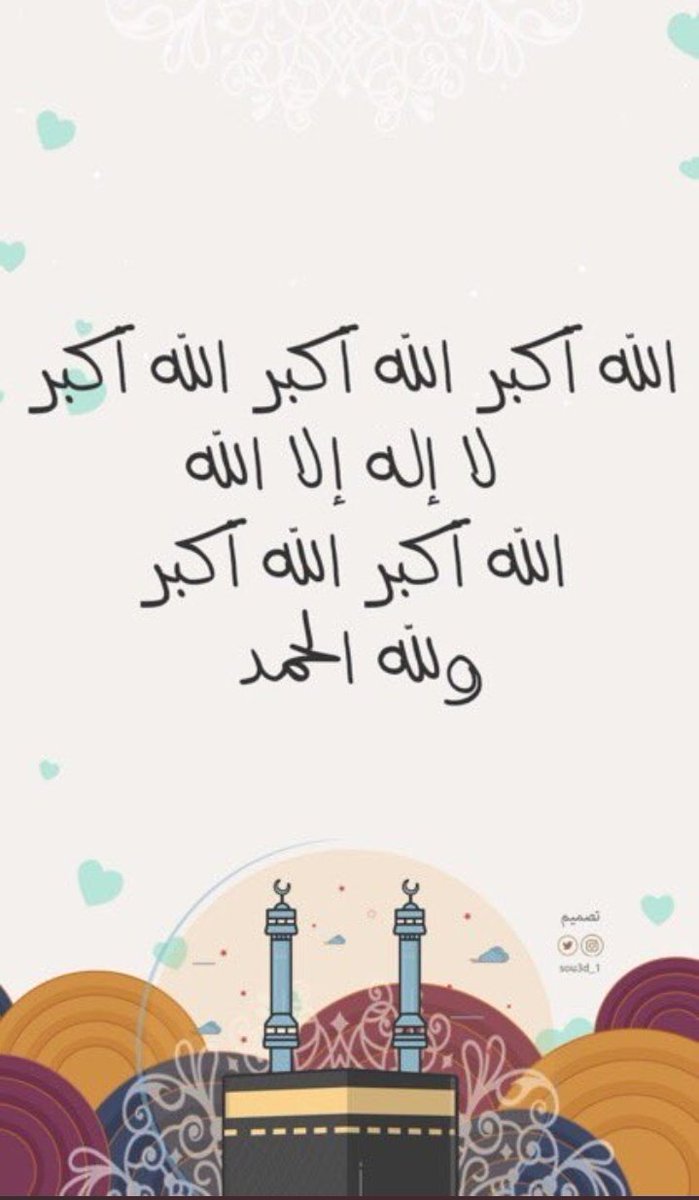 الله أكبر الله أكبر الله أكبر
لا إله إلا الله
الله أكبر الله أكبر
ولله الحمد
تصميم
sou3d_1